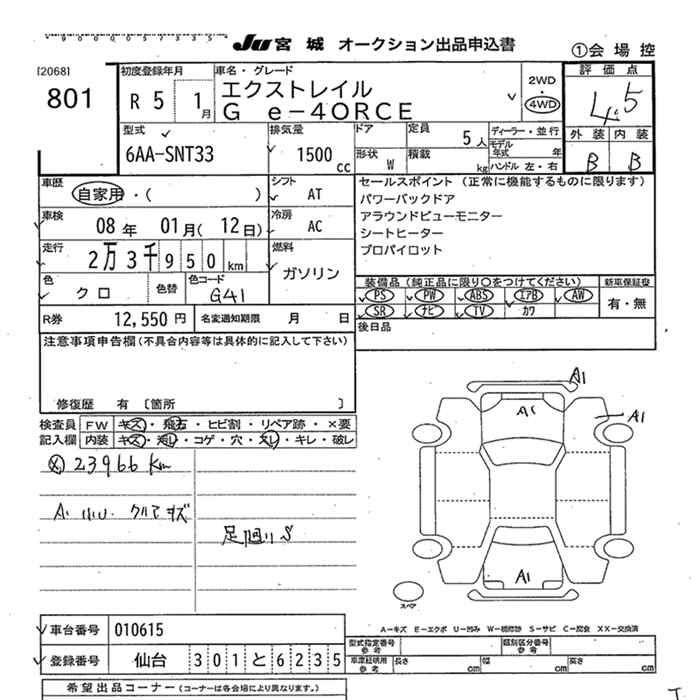 9000057335
Ju 宮城 オークション出品申込書
①会場控
[2068]
801
初度登録年月
R 5 1月
車名・グレード
エクストレイル
G e-4ORCE
2WD
・
4WD
評価点
4.5
外装 内装
B B
型式
6AA-SNT33
排気量
1500 cc
ドア
定員 5人
形状 W
積載 kg
ディーラー・並行
モデル年式 年
ハンドル 左・右
車歴
自家用・( )
シフト
AT
車検
08年 01月(12日)
冷房
AC
走行
2万3千950km
燃料
ガソリン
色
クロ
色替
色コード
G41
セールスポイント(正常に機能するものに限ります)
パワーバックドア
アラウンドビューモニター
シートヒーター
プロパイロット
装備品(純正品に限り○をつけてください)
新車保証書
PS PW ABS エアB AW
SR ナビ TV カワ
有・無
R券 12,550円
名変通知期限 月 日
後日品
注意事項申告欄(不具合内容等は具体的に記入して下さい)
修復歴 有 〔箇所 〕
検査員記入欄
FW キズ・飛石・ヒビ割・リペア跡・×要
内装 キズ・汚レ・コゲ・穴・スレ・キレ・破レ
23966 km
A1 小U クリアキズ
足回りS
A1
A1
A1
A1
スペア
A-キズ E-エクボ U-凹み W-補修跡 S-サビ C-腐食 XX-交換済
車台番号 010615
登録番号 仙台 301と6235
型式指定番号 参考
類別区分番号 参考
車庫証明用 参考
長さ cm
幅 cm
高さ cm
希望出品コーナー(コーナーは各会場により異なります。)